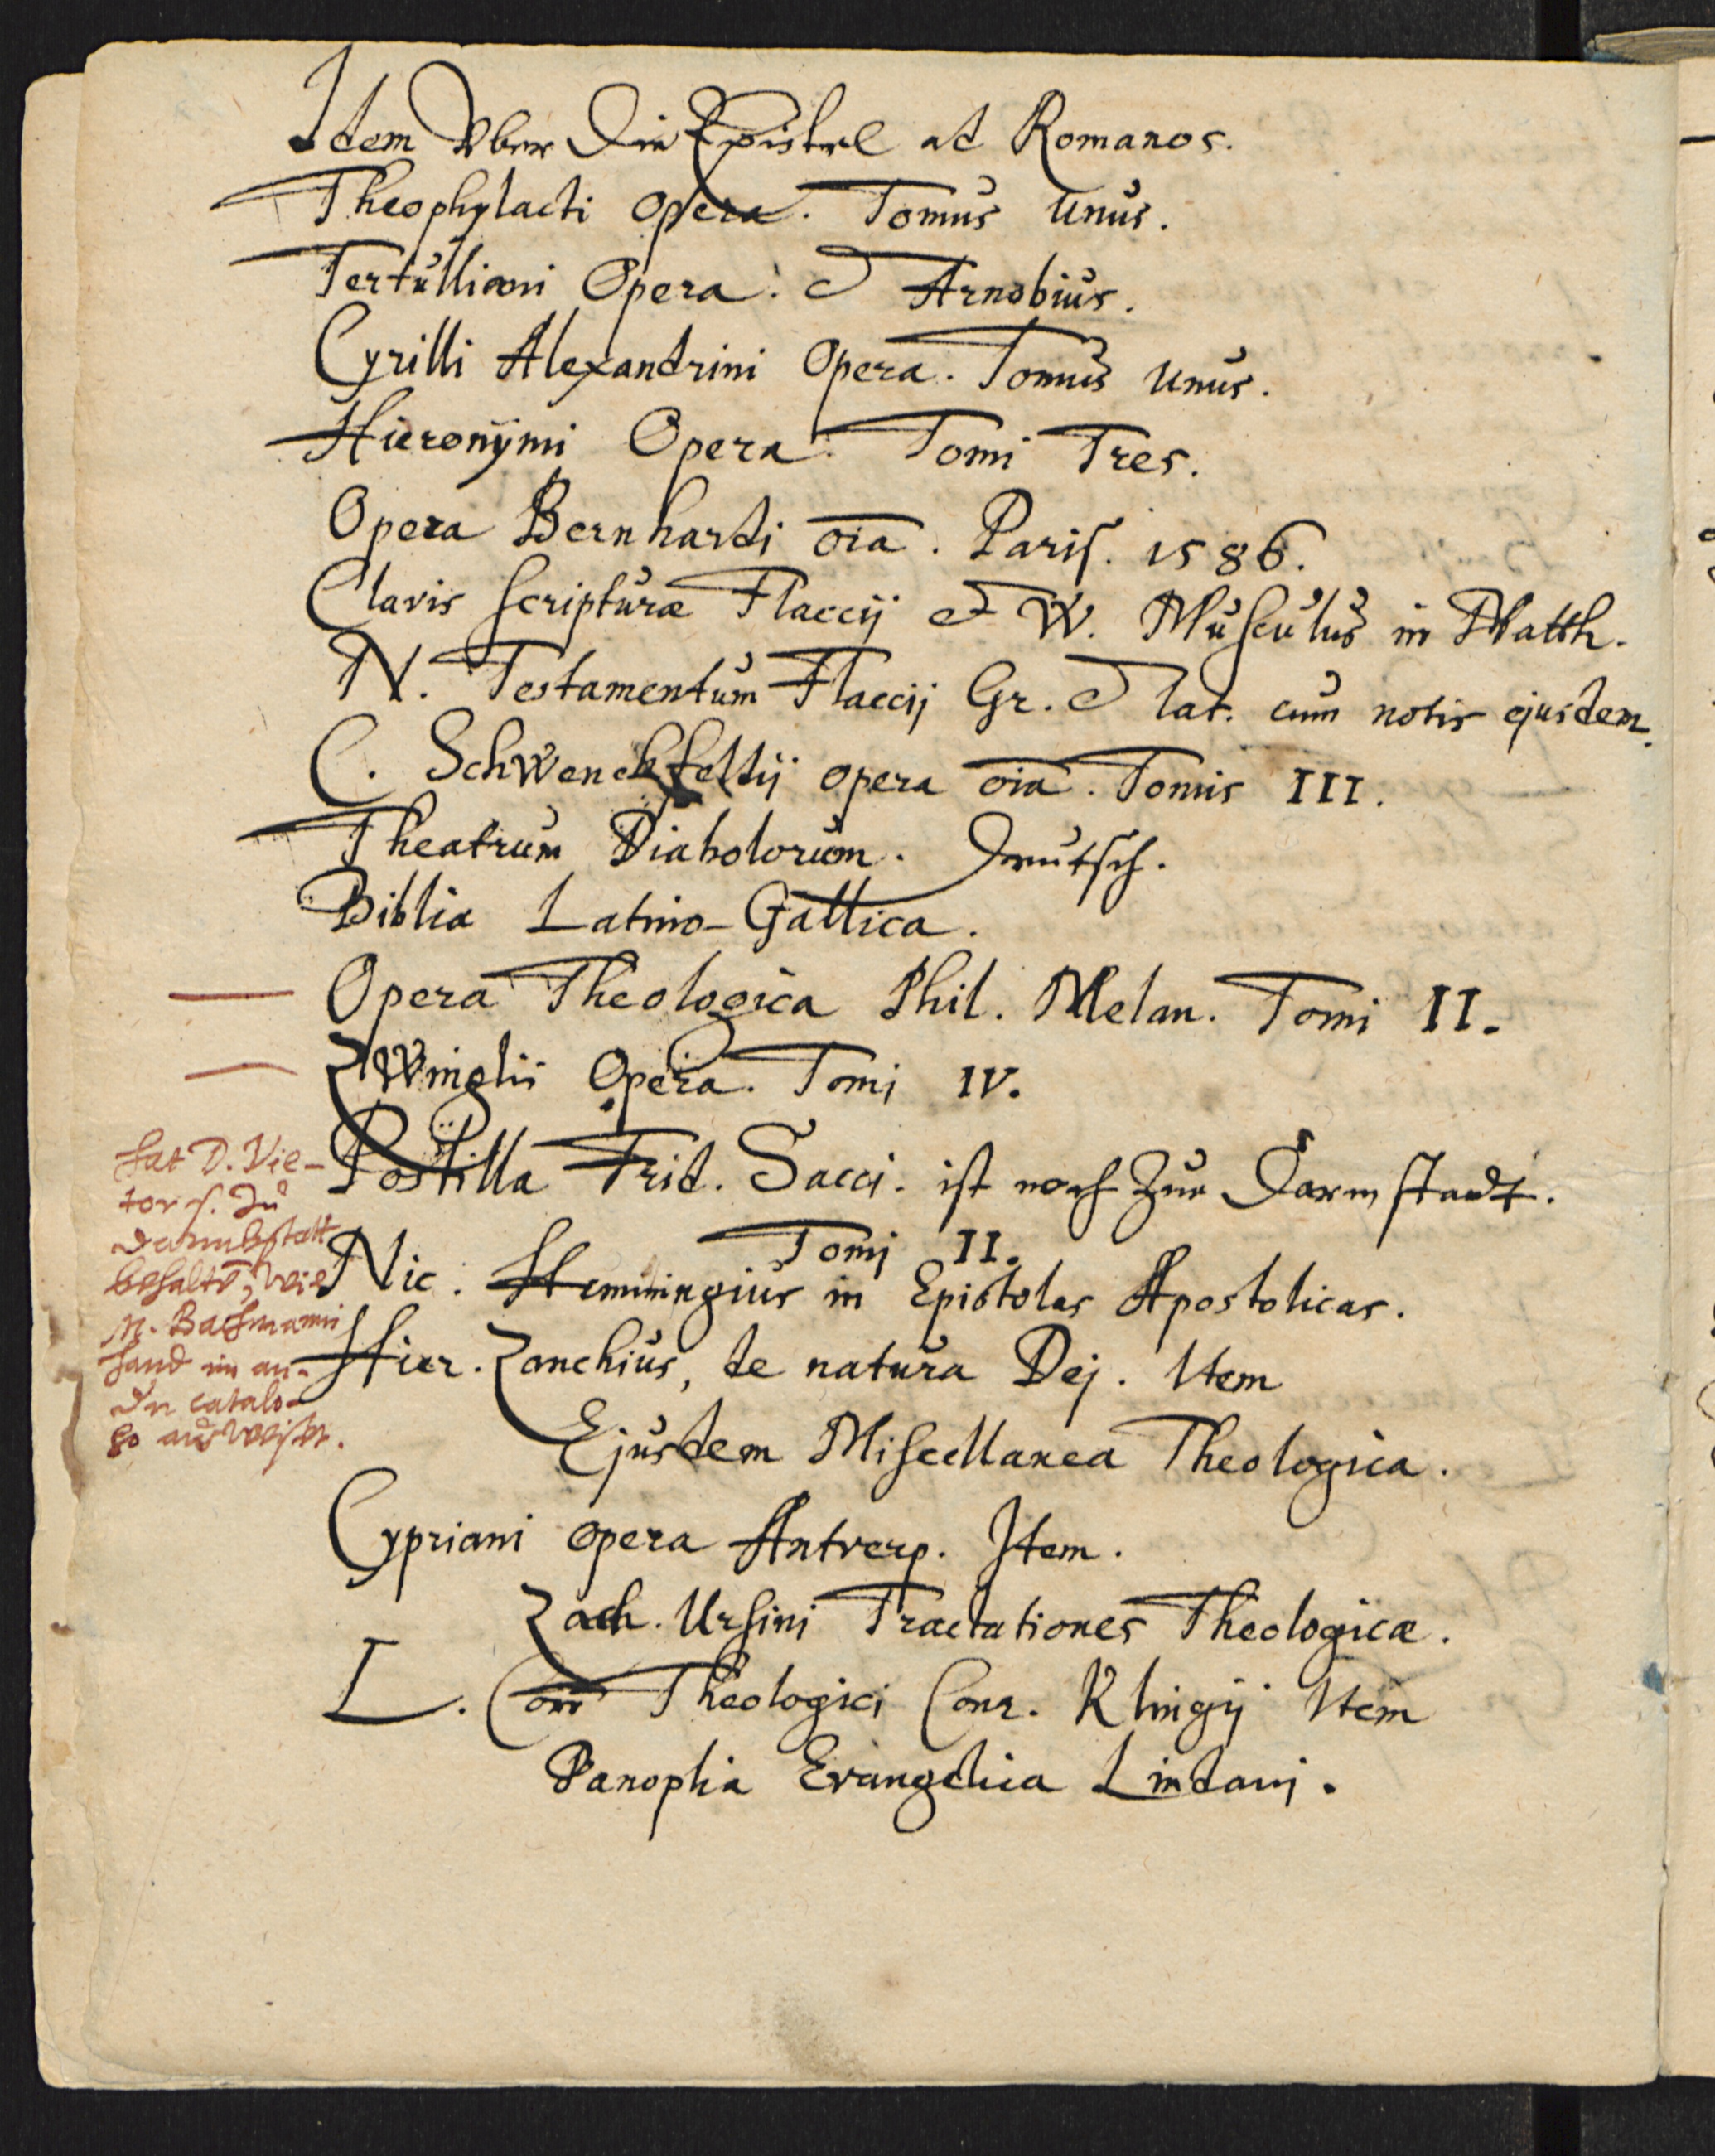 Idem Vber Die Epistel ad Romanos.
Theophylacti Opera. Tomus Unus.
Tertulliani Opera. et Arnobius.
Cyrilli Alexandrini Opera. Tomus Unus.
Hieronÿmi Opera. Tomi Tres.
Opera Bernhardi oīa. Paris. 1586.
Clavis scripturæ Flaccij et W. Musculus in Matth.
N. Testamentum Flaccij Gr. et lat. cum notis ejusdem.
C. Schwenckfeltij opera oīa. Tomis III.
Theatrum Diabolorum. Deutsch.
Biblia Latino-Gallica.
Opera Theologica Phil. Melan. Tomi II.
Zwinglii Opera. Tomi IV.
Postilla Frid. Sacci. ist noch Zur Darmstadt.
Tomi II.
Nic. Hemmingius in Epistolas Apostolicas.
Hier. Zanchius, de natura Dej. Item
Ejusdem Miscellanea Theologica.
Cypriani opera Antverp. Item.
Zach. Ursini Tractationes Theologicæ.
L. Com̄ Theologici Conr. Klingij Item
Panoplia Evangelica Lindani.
hat D. Vie-
tor s. Zu
Darmbstatt
behaltē, wie
M. Bachmanni
hand im an-
dn catalo-
go außweiset.